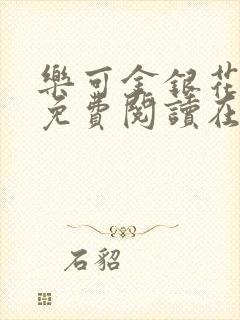 樂可金銀花
免費閱讀在
石貂